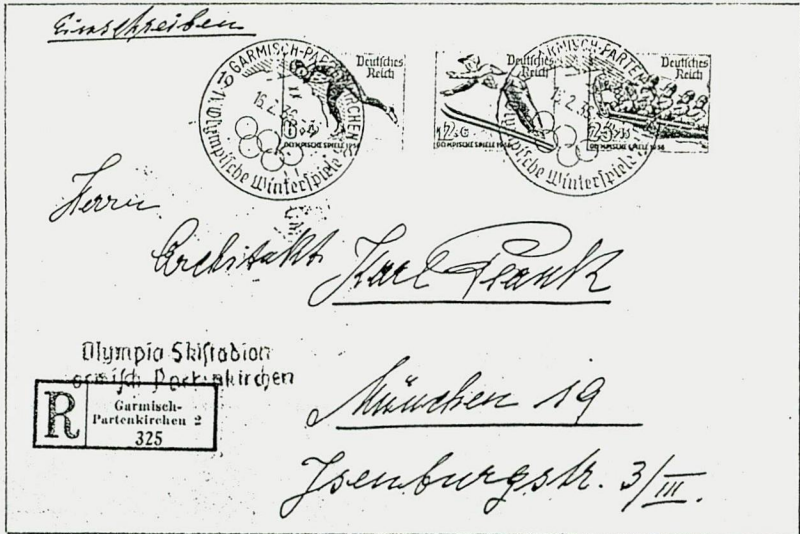 Einschreiben
GARMISCH-PARTENKIRCHEN 2
16.2.36
IV. Olympische Winterspiele
Deutsches Reich
6+4
OLYMPISCHE SPIELE 1936
Deutsches Reich
12+6
OLYMPISCHE SPIELE 1936
GARMISCH-PARTEN
.2.36
Olympische Winterspiele
Deutsches Reich
OLYMPISCHE SPIELE 1936
Herrn
Architekt Karl
München 19
Isenburgstr. 3/III.
Olympia Skistadion
armisch-Partenkirchen
R
Garmisch-
Partenkirchen 2
325